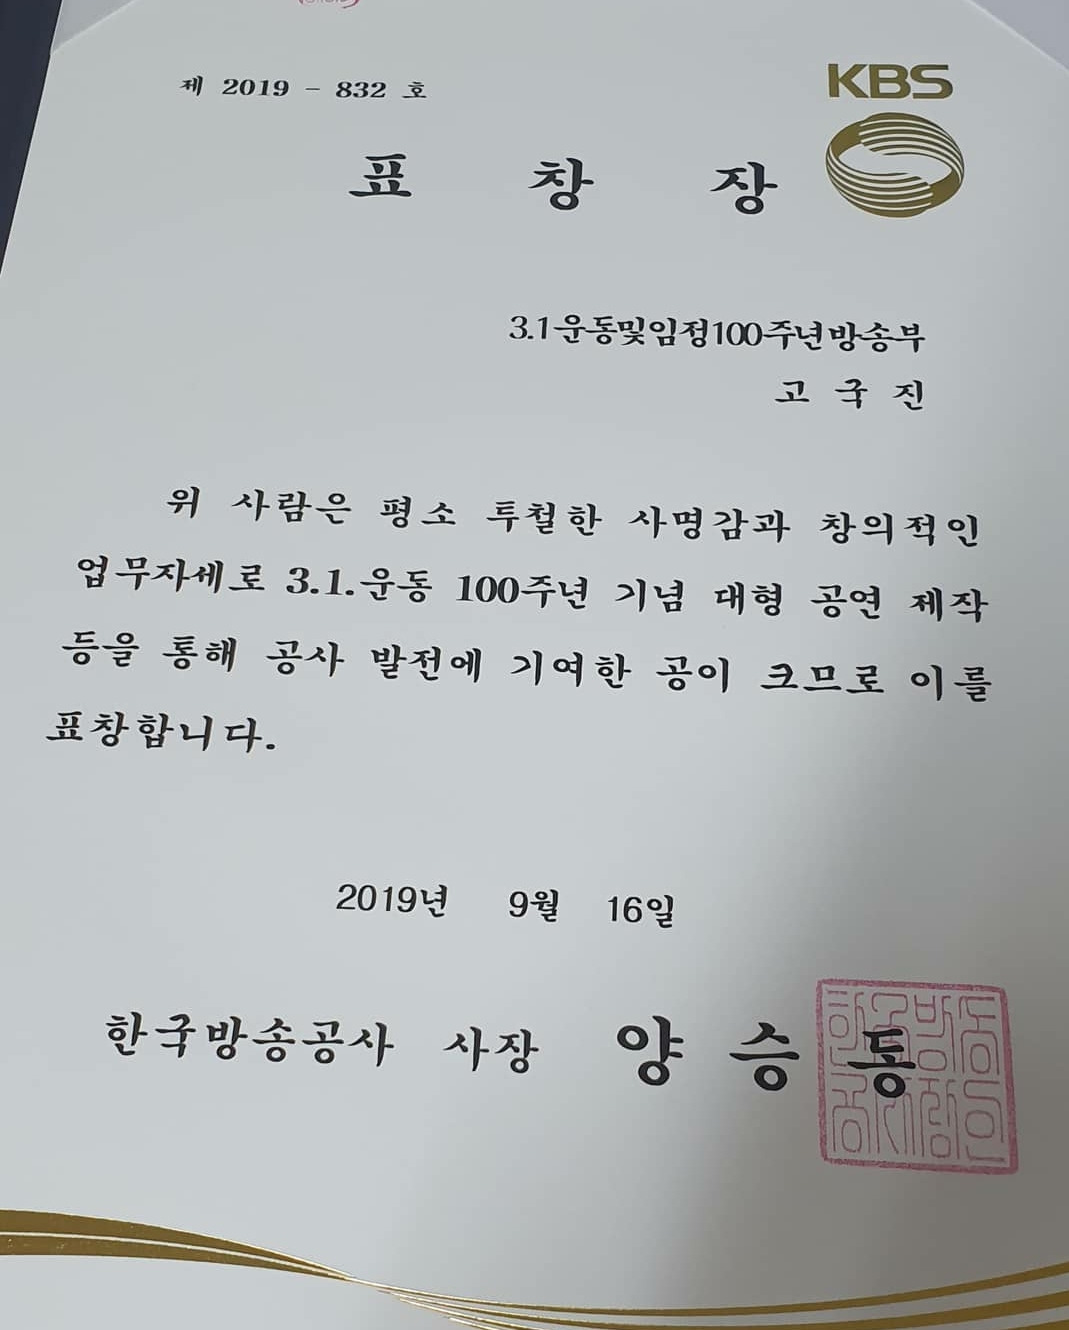 제 2019 - 832 호
KBS
표 창 장
3.1운동및임정100주년방송부
고 국 진
위 사람은 평소 투철한 사명감과 창의적인
업무자세로 3.1.운동 100주년 기념 대형 공연 제작
등을 통해 공사 발전에 기여한 공이 크므로 이를
표창합니다.
2019년 9월 16일
한국방송공사 사장 양 승 동